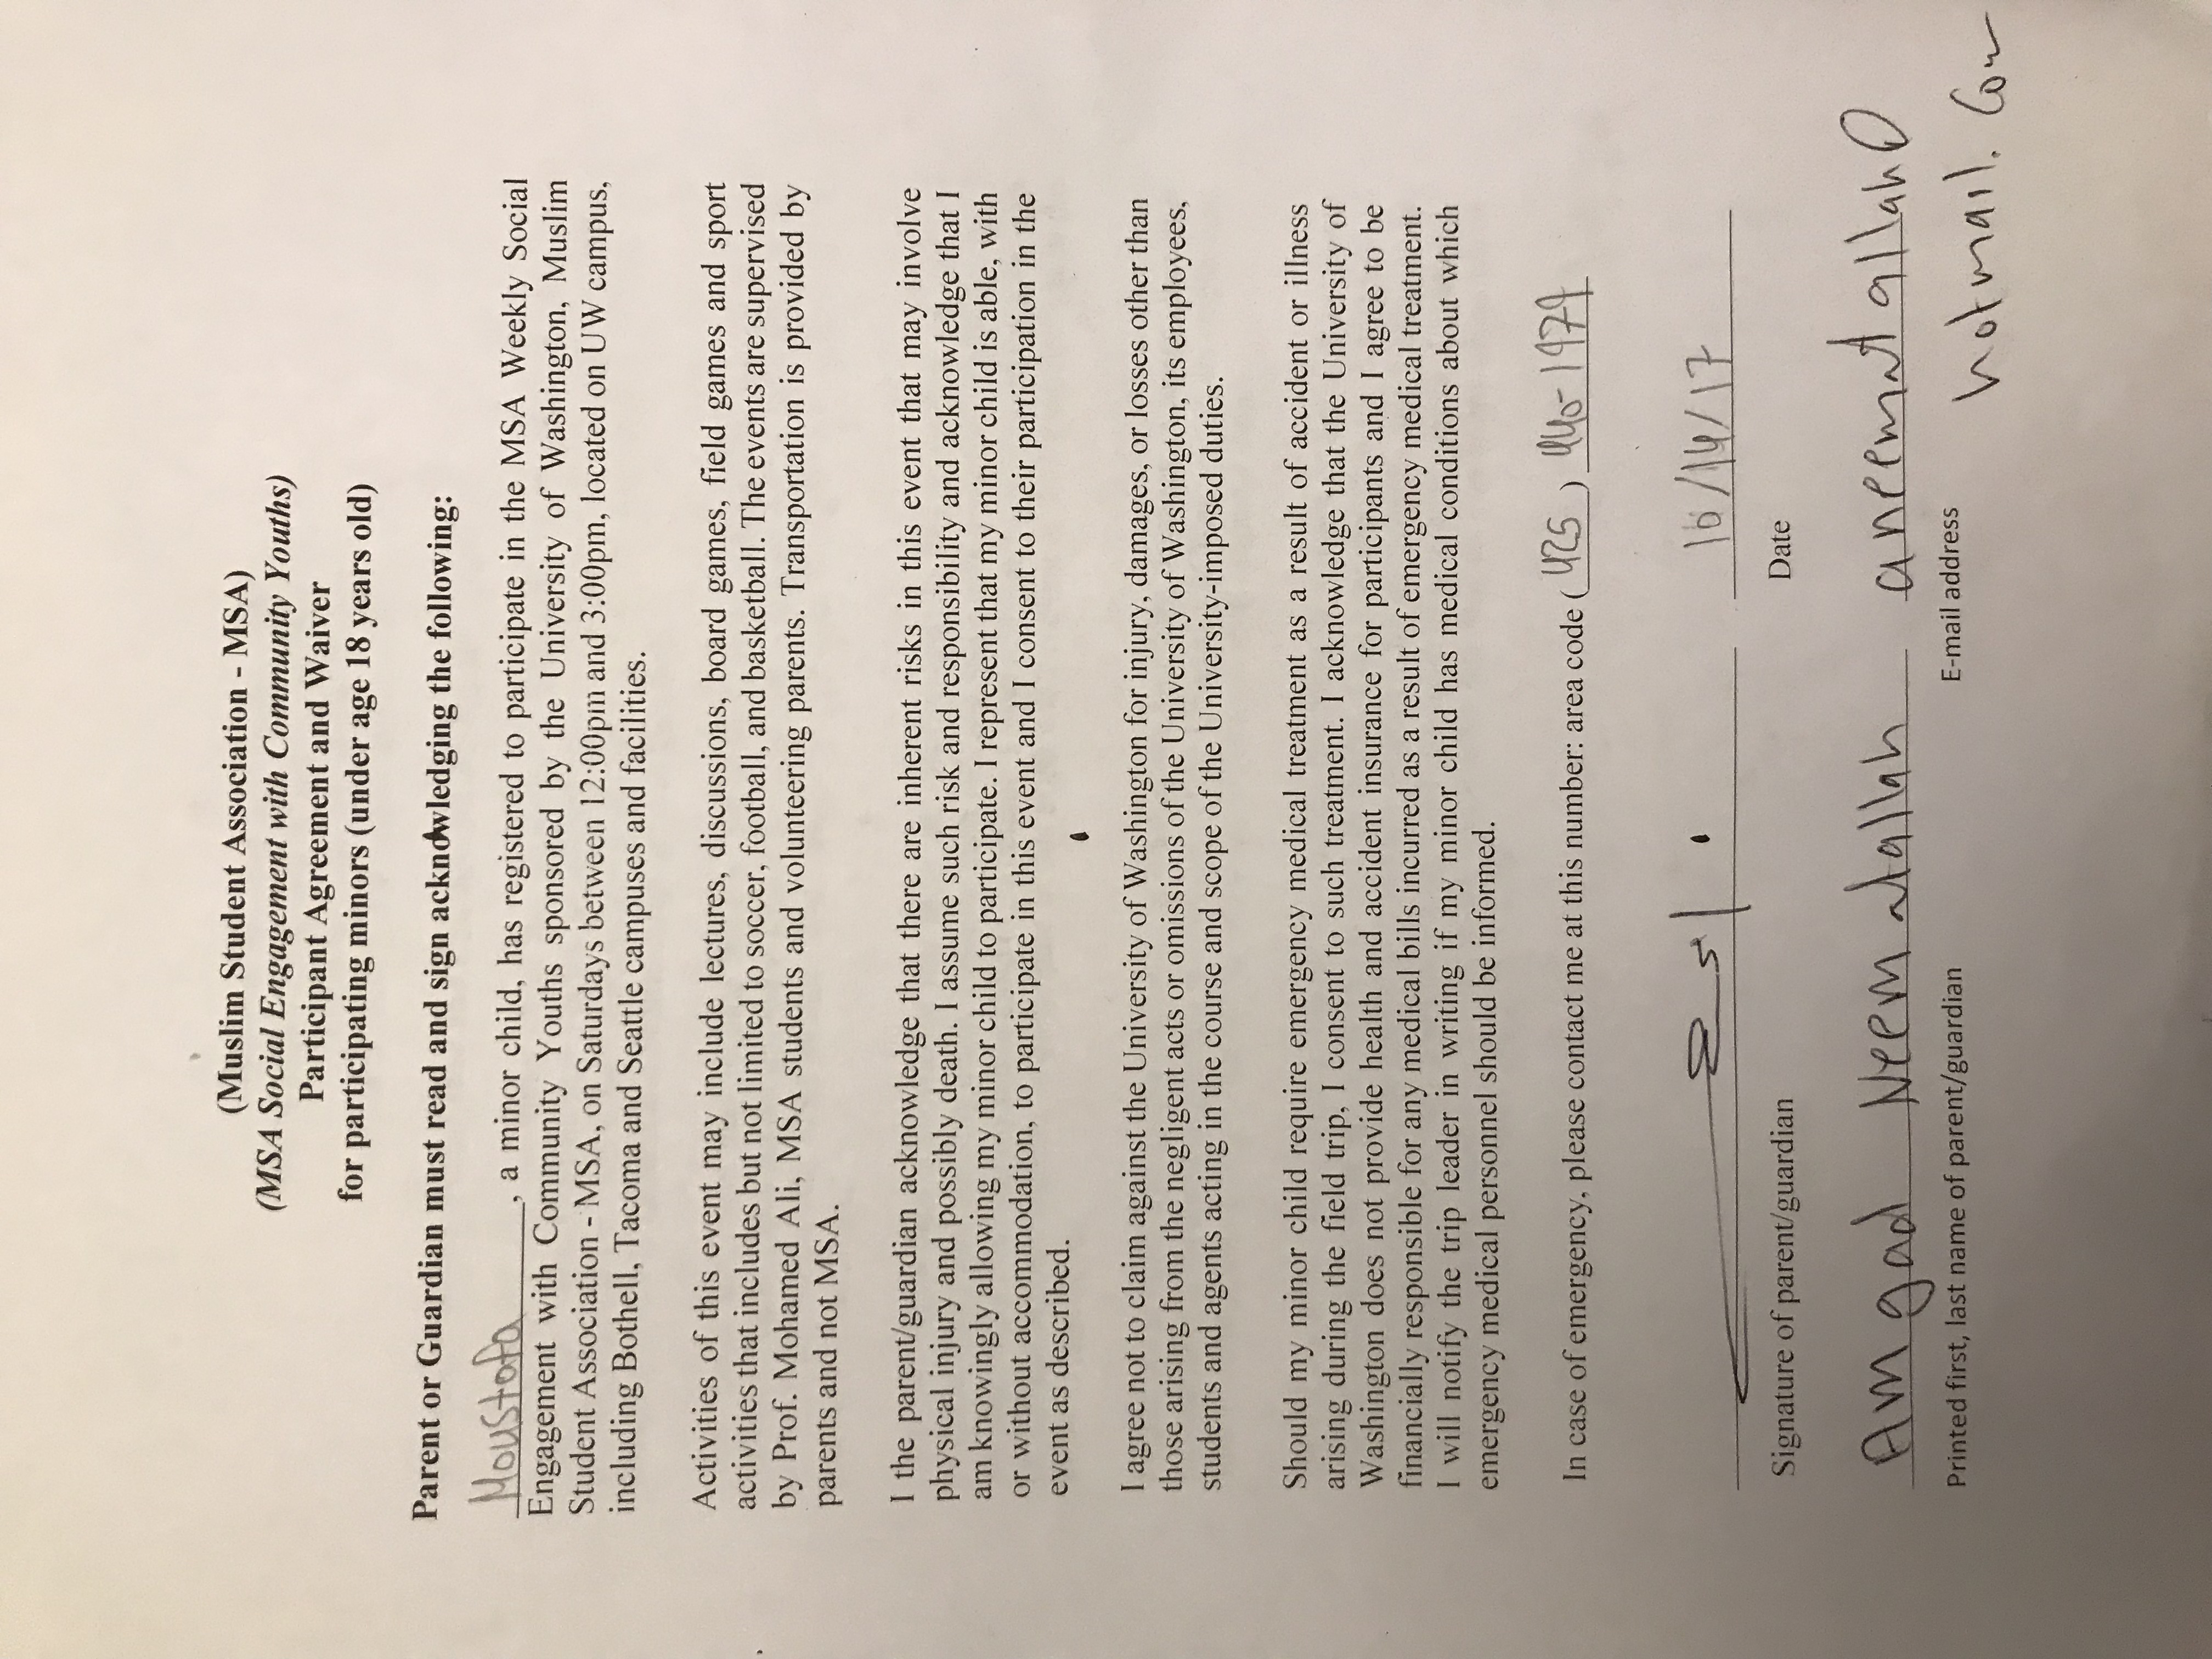 (Muslim Student Association - MSA)
(MSA Social Engagement with Community Youths)
Participant Agreement and Waiver
for participating minors (under age 18 years old)
Parent or Guardian must read and sign acknowledging the following:
Moustafa, a minor child, has registered to participate in the MSA Weekly Social
Engagement with Community Youths sponsored by the University of Washington, Muslim
Student Association - MSA, on Saturdays between 12:00pm and 3:00pm, located on UW campus,
including Bothell, Tacoma and Seattle campuses and facilities.
Activities of this event may include lectures, discussions, board games, field games and sport
activities that includes but not limited to soccer, football, and basketball. The events are supervised
by Prof. Mohamed Ali, MSA students and volunteering parents. Transportation is provided by
parents and not MSA.
I the parent/guardian acknowledge that there are inherent risks in this event that may involve
physical injury and possibly death. I assume such risk and responsibility and acknowledge that I
am knowingly allowing my minor child to participate. I represent that my minor child is able, with
or without accommodation, to participate in this event and I consent to their participation in the
event as described.
I agree not to claim against the University of Washington for injury, damages, or losses other than
those arising from the negligent acts or omissions of the University of Washington, its employees,
students and agents acting in the course and scope of the University-imposed duties.
Should my minor child require emergency medical treatment as a result of accident or illness
arising during the field trip, I consent to such treatment. I acknowledge that the University of
Washington does not provide health and accident insurance for participants and I agree to be
financially responsible for any medical bills incurred as a result of emergency medical treatment.
I will notify the trip leader in writing if my minor child has medical conditions about which
emergency medical personnel should be informed.
In case of emergency, please contact me at this number: area code ( 425 ) 440-1979
10/14/17
Signature of parent/guardian Date
Amgad Neematallah aneematallah@
Printed first, last name of parent/guardian E-mail address
hotmail.com